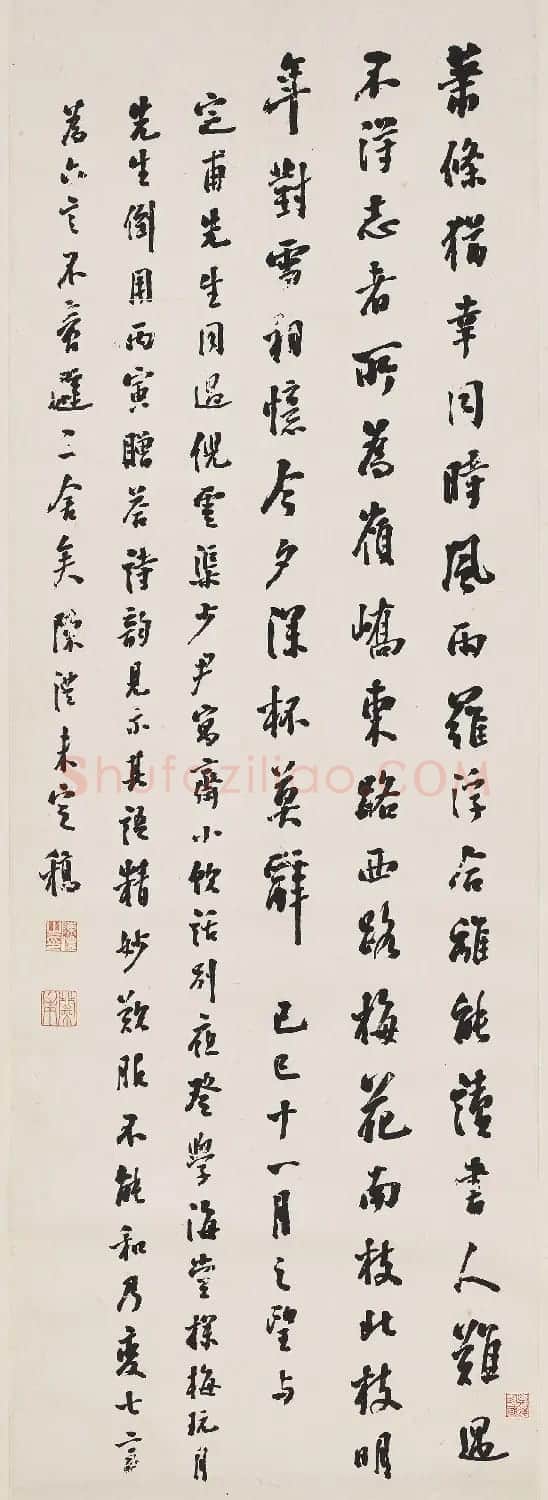 蕭條猶幸同時風雨羅浮合離能讀書人難遇
不得志者所為嶺嶠東路西路梅花南枝北枝明
年對雪相憶今夕深杯莫辭 己巳十一月之望與
定甫先生同過倪雲渠少尹寓齋小飲話別夜登學海堂探梅玩月
先生倒用丙寅贈答詩韵見示其語精妙歎服不能和乃變七言
為六言不啻避三舍矣陳澧未定稿
Shufaziliao.COM